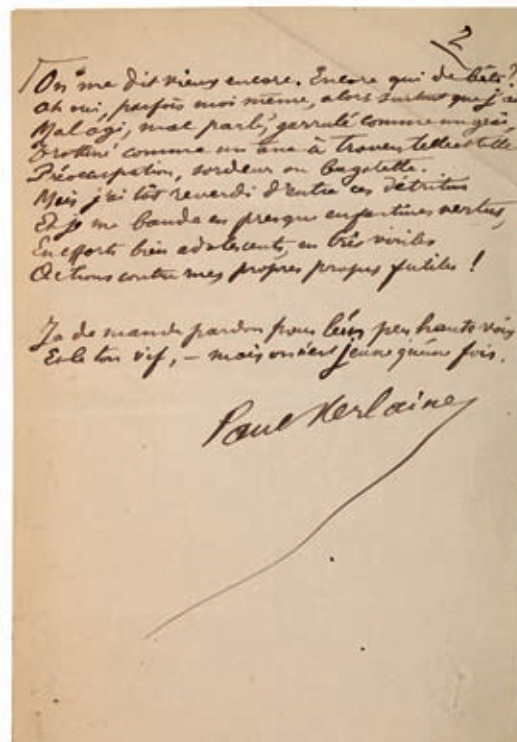 2
On me dit vieux encore. Encore qui de bête ?
Ah oui, parfois moi même, alors surtout que j'ai
Mal agi, mal parlé, garrulé comme un geai,
Trottiné comme un âne à travers telle et telle
Préoccupation, sordeur ou bagatelle.
Mais j'ai tôt reverdi d'entre ces détritus
Et je me bande en presque enfantines vertus,
En efforts bien adolescents, en très viriles
Actions contre mes propres propos futiles !
Je demande pardon pour leur peu haute voix
Et le ton vif, — mais on n'est jeune qu'une fois.
Paul Verlaine